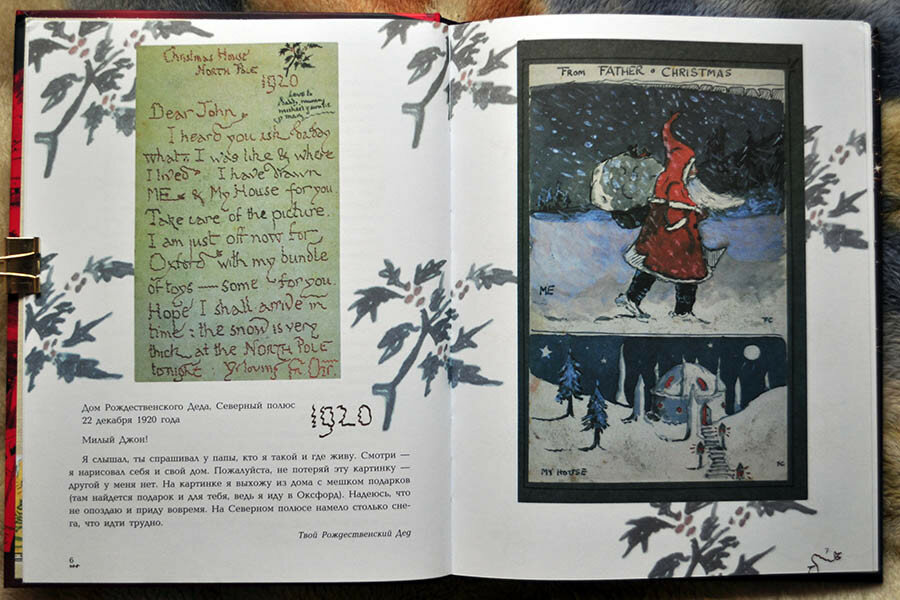 Christmas House
NORTH POLE
1920
Love to
daddy, mummy
michael & auntie
mary
Dear John
I heard you ask daddy
what I was like & where
I lived. I have drawn
ME & My House for you.
Take care of the picture.
I am just off now for
Oxford with my bundle
of toys — some for you.
Hope I shall arrive in
time: the snow is very
thick at the NORTH POLE
tonight. Yr loving Fr. Chr.
Дом Рождественского Деда, Северный полюс
22 декабря 1920 года
1920
Милый Джон!
Я слышал, ты спрашивал у папы, кто я такой и где живу. Смотри —
я нарисовал себя и свой дом. Пожалуйста, не потеряй эту картинку —
другой у меня нет. На картинке я выхожу из дома с мешком подарков
(там найдется подарок и для тебя, ведь я иду в Оксфорд). Надеюсь, что
не опоздаю и приду вовремя. На Северном полюсе намело столько сне-
га, что идти трудно.
Твой Рождественский Дед
6
FROM FATHER CHRISTMAS
ME
FC
MY HOUSE
FC
7